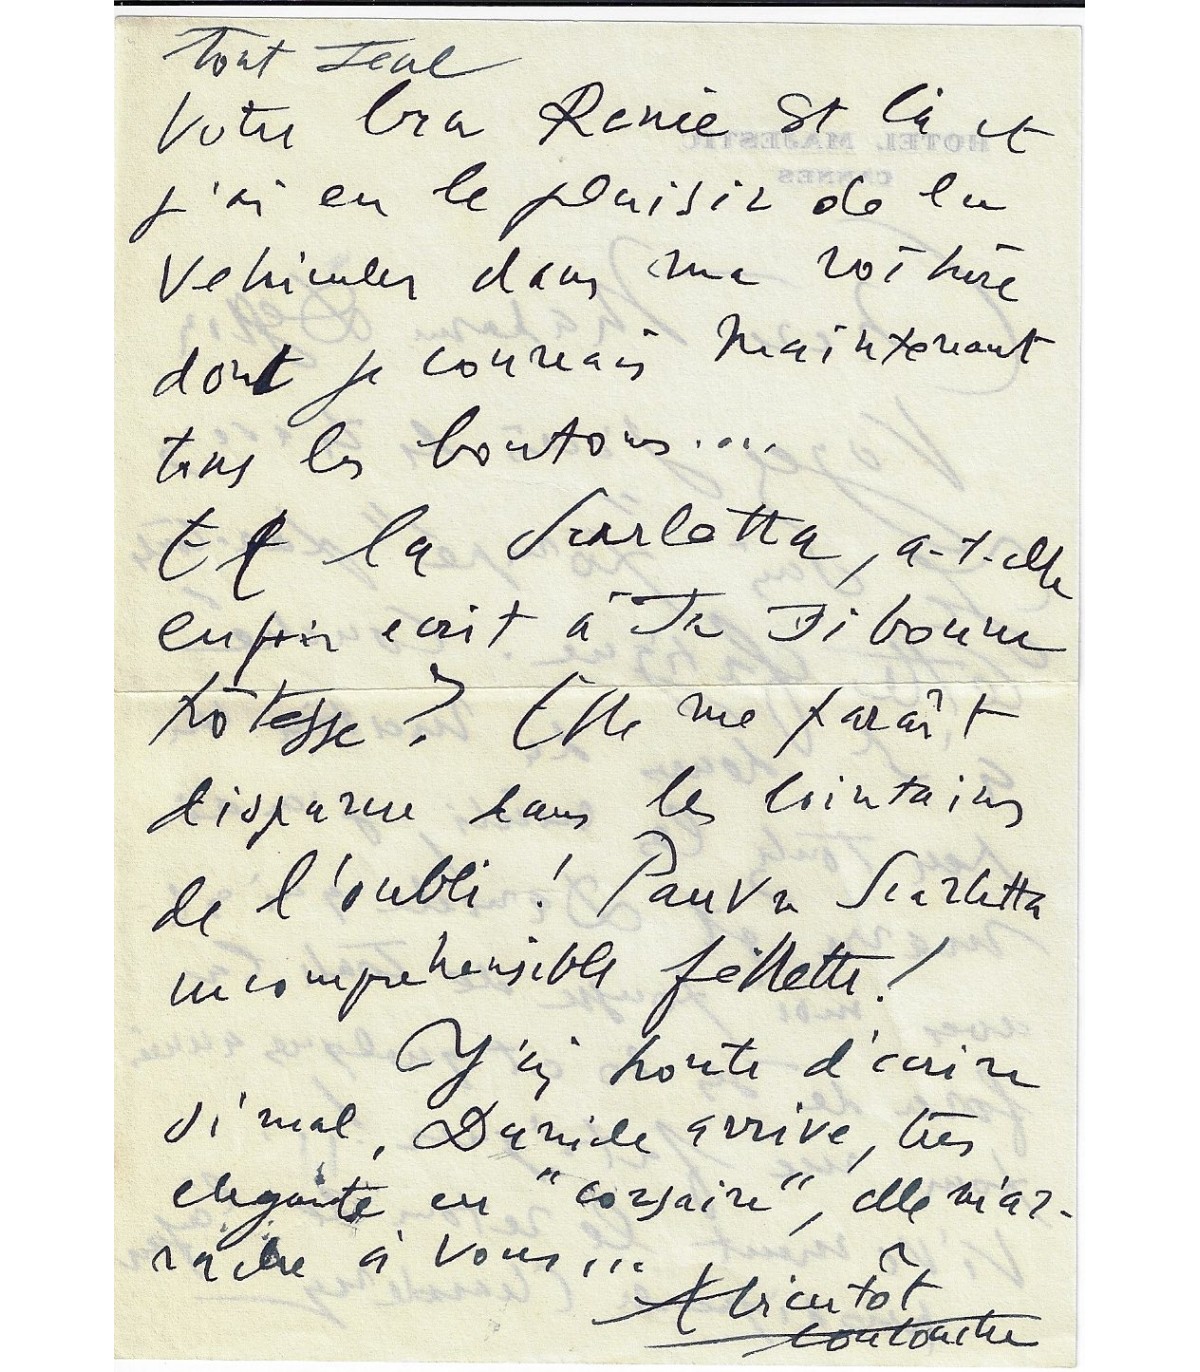 Tout seul
Votre bra Renée est là et
j'ai eu le plaisir de la
véhiculer dans ma voiture
dont je connais maintenant
tous les boutons....
Et la Scarletta, a-t-elle
enfin écrit à sa si bonne
hôtesse? Elle me paraît
disparue dans les lointains
de l'oubli! Pauvre Scarletta
incompréhensible fillette!
J'ai honte d'écrire
si mal, Danièle arrive, très
élégante en "corsaire", elle m'ar-
rache à vous...
A bientôt
HOTEL MAJESTIC
CANNES